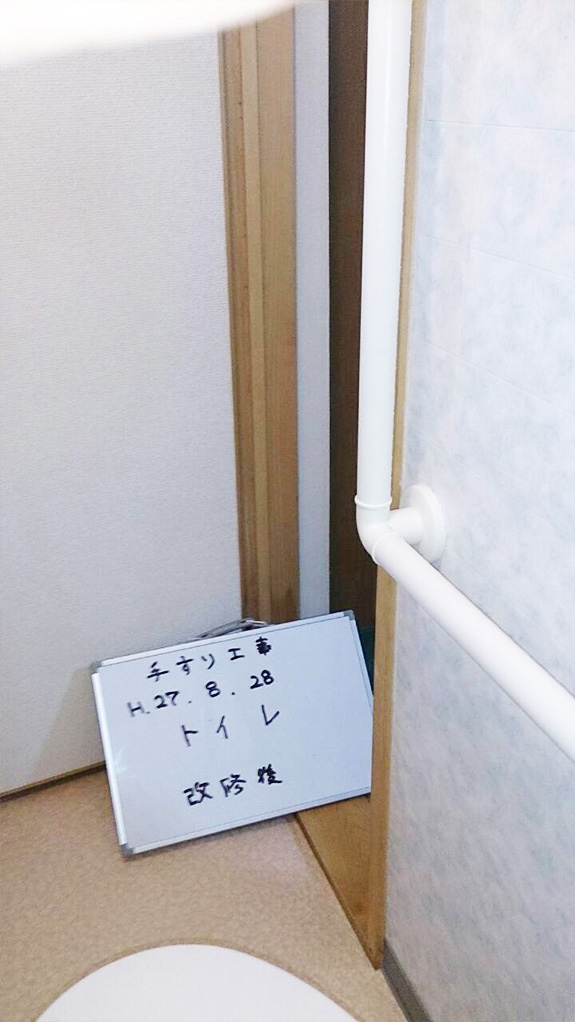 手すり工事
H.27.8.28
トイレ
改修後